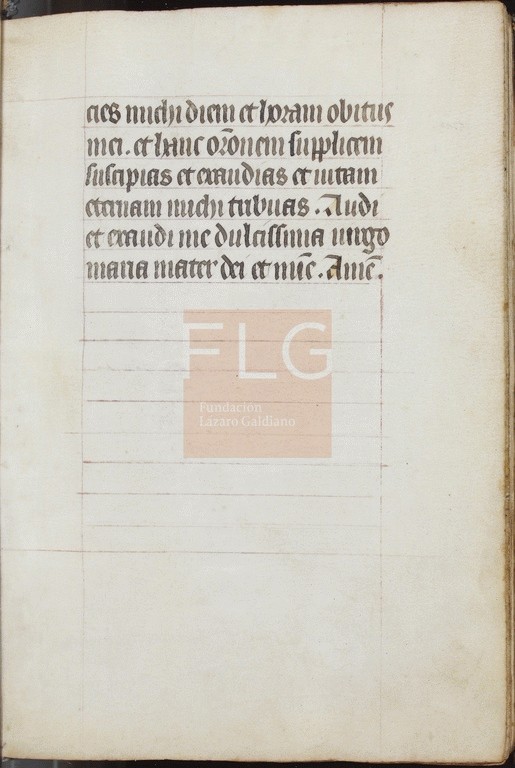 cies michi diem et horam obitus
mei. et hanc or̄onem supplicem
suscipias et exaudias et vitam
eternam michi tribuas. Audi
et exaudi me dulcissima virgo
maria mater dei et mīe. Amē.
FLG
Fundación
Lázaro Galdiano